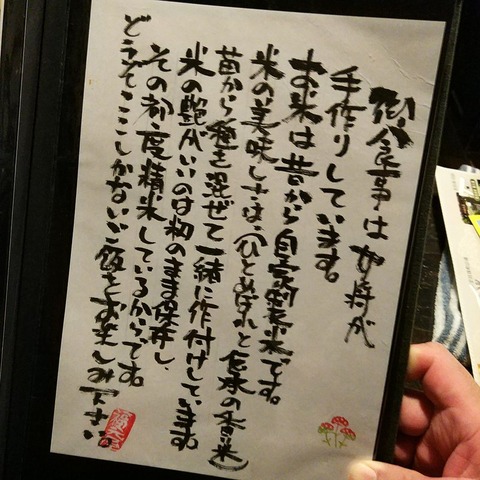 御食事は女将が
手作りしています。
お米は昔から自家製米です。
米の美味しさは、(ひとめぼれと伝承の香米)
苗から種を混ぜて一緒に作付けしています。
米の艶がいいのは籾のまま保存し、
その都度精米しているからです。
どうぞここしかないご飯をお楽しみ下さい。